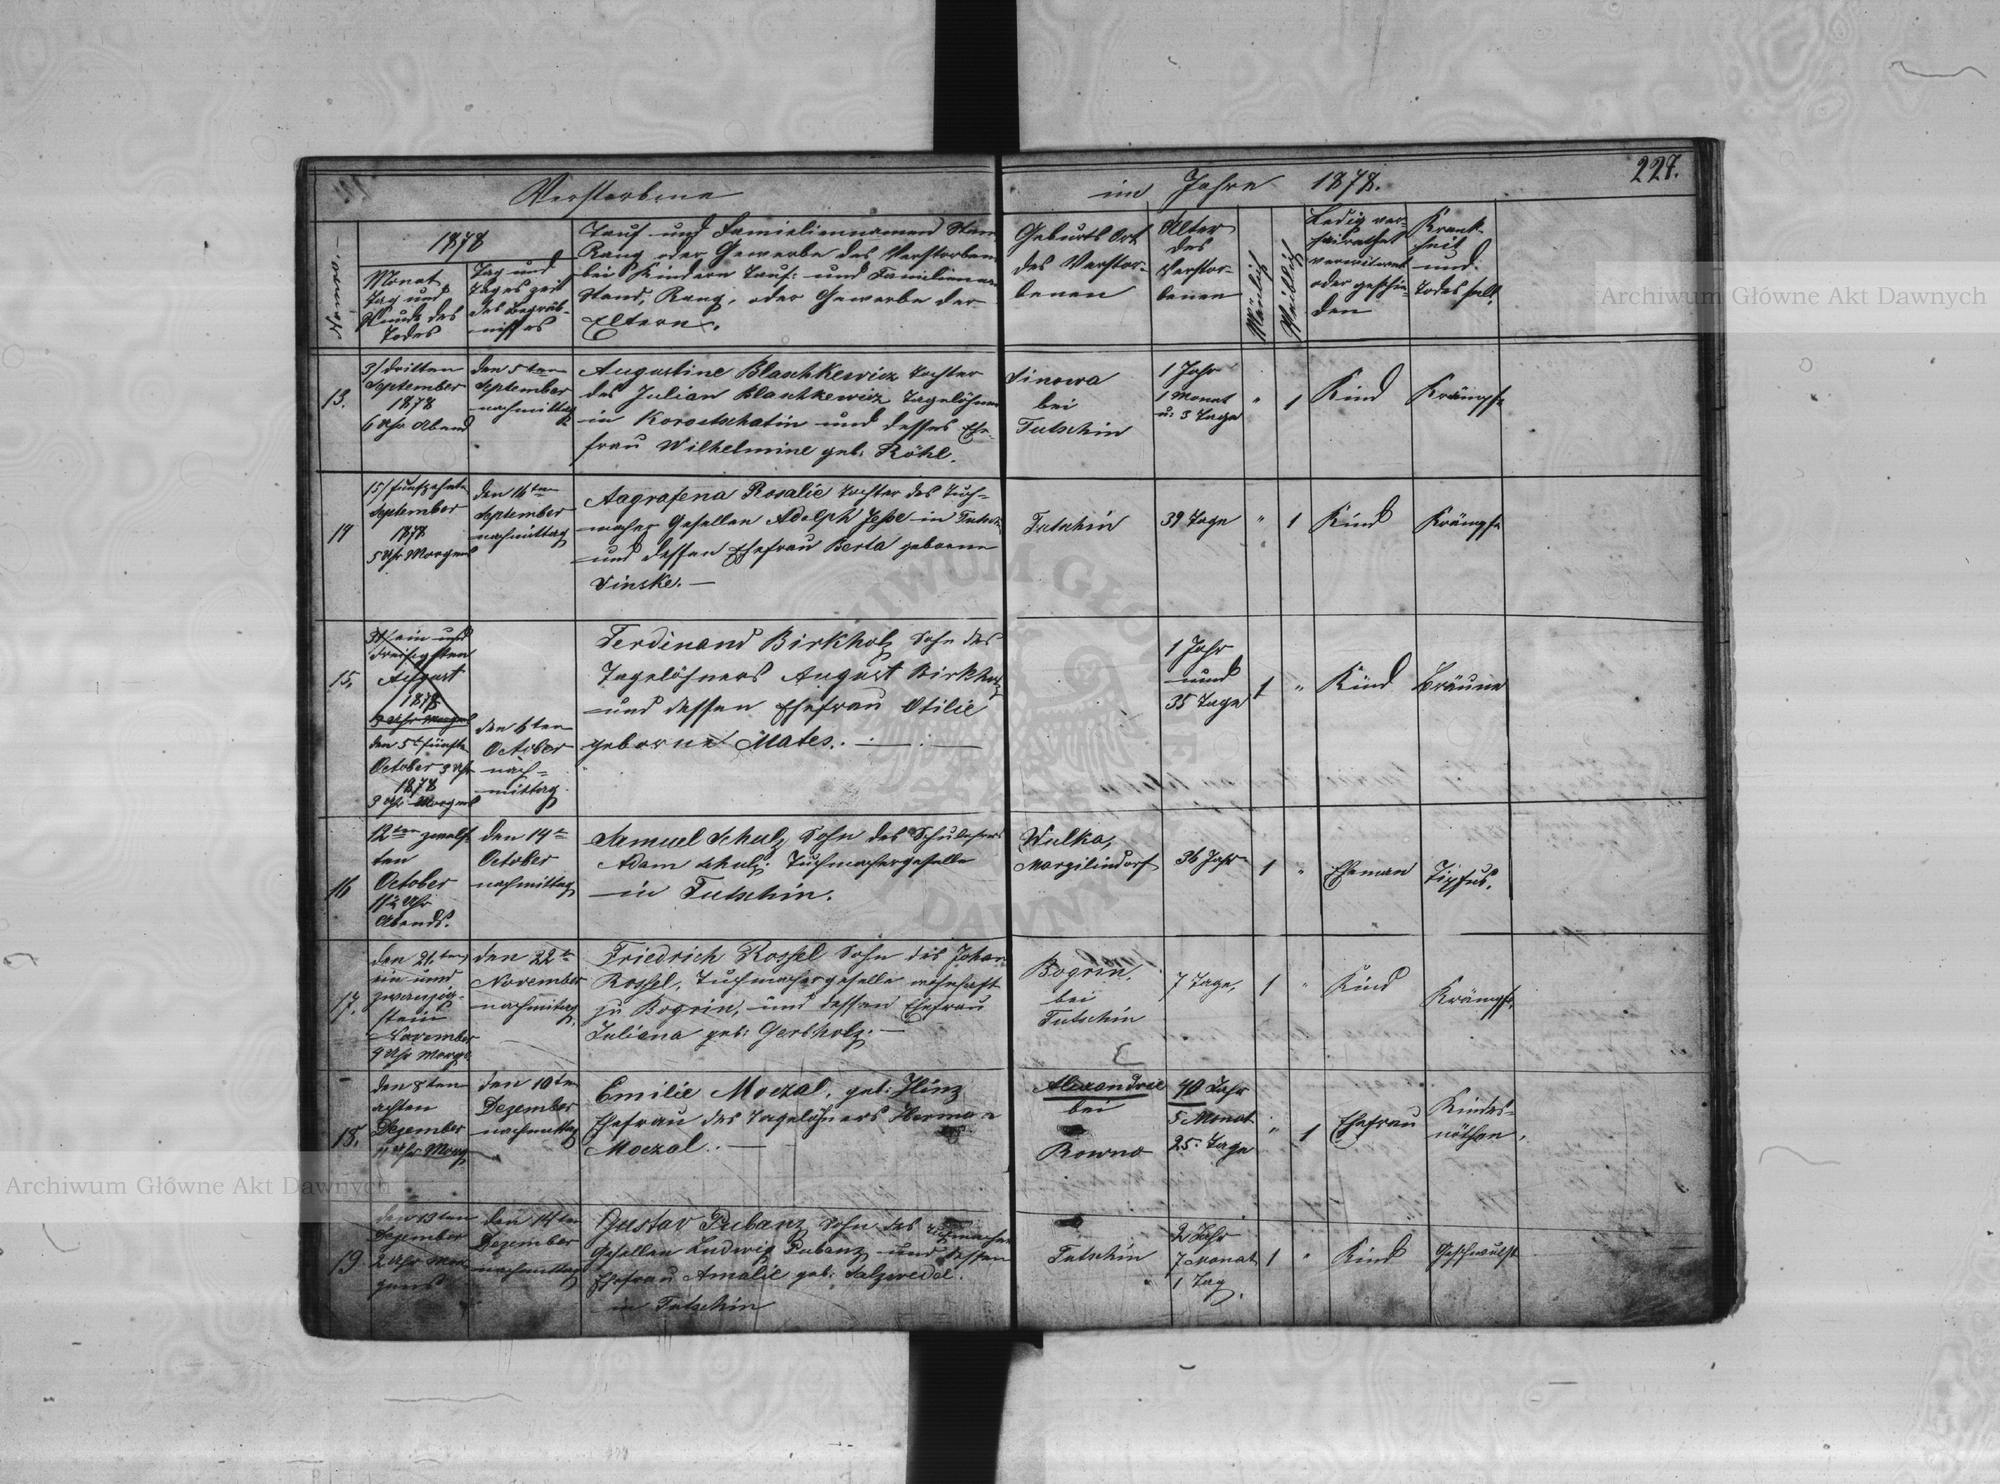 227.
Verstorbene im Jahre 1878.
Numero.
1878
Monat
Tag und
Stunde des
Todes
Tag und
Tages zeit
des Begräb-
nisses
Tauf- und Familiennamen Stan
Rang oder Gewerbe des Verstorben
bei Kindern Tauf- und Familien
Stand, Rang, oder Gewerbe der
Eltern.
Geburts Ort
des Verstor-
benen
Alter
des
Verstor-
benen
Mänlich
Weiblich
Ledig ver-
heirathet
verwitwet
oder geschie-
den
Krank-
heit
und
Todes fall.
13.
3/ dritten
September
1878
6 Uhr Abend
den 5ten
September
nachmittag
Augustine Blaschkewicz Tochter
des Julian Blaschkewicz Tagelöhner
in Koroctschatin und dessen Ehe-
frau Wilhelmine geb: Röhl.
Sinowa
bei
Tutschin
1 Jahr
1 Monat
u: 3 Tage
" 1
Kind
Krämpfe
14
15/ fünfzehnte
September
1878
5 Uhr Morgens
den 16ten
September
nachmittag
Aagrafena Rosalie Tochter des Tuch-
macher Gesellen Adolph Jesse in Tutsch
und dessen Ehefrau Berta geborne
Dinske. —
Tutschin
39 Tage
" 1
Kind
Krämpfe
15.
31/ ein und
dreisigsten
August
1878
3 Uhr Morgens
den 5t fünfte
October 3 Uhr
1878
3 Uhr Morgens
den 6ten
October
nach-
mittag
Ferdinand Birkholz Sohn des
Tagelöhners August Birkholz
und dessen Ehefrau Otilie
geborne Mates. — . —
1 Jahr
und
35 Tage
1 "
Kind
Bräune
16
12ten zwölf
ten
October
11½ Uhr
Abends.
den 14te
October
nachmittag
Samuel Schulz Sohn des Schulehrers
Adam Schulz. Tuchmachergeselle
in Tutschin.
Wulka,
Margilindorf
36 Jahr
1 "
Eheman
Tipfus.
17.
den 21.ten
ein und
zwanzig-
stein
November
9 Uhr Morgs.
den 22te
November
nachmitag.
Friedrich Rossel Sohn des Johan
Rossel, Tuchmachergeselle wohnhaft
zu Bogrin, und dessen Ehefrau
Juliana geb: Gertholz. —
Bogrin,
bei
Tutschin
7 Tage,
1 "
Kind
Krämpfe
18.
den 8ten
achten
Dezember
4 Uhr Morg
den 10ten
Dezember
nachmittag
Emilie Moczal, geb: Hinz
Ehefrau des Tagelöhners Herman
Moczal. —
Alexandrie
bei
Rowno
40 Jahr
5 Monat
25. Tage
" 1
Ehefrau
Kindes-
nöthen.
19
den 13ten
Dezember
2 Uhr Mor
gens
den 14ten
Dezember
nachmittag
Gustav Pubanz Sohn des Tuchmacher
Gesellen Ludwig Pubanz und dessen
Ehefrau Amalie geb: Salzwedel.
in Tutschin
Tutschin
2 Jahr
7 Monat
1 Tag.
1 "
Kind
Geschwulst
Archiwum Główne Akt Dawnych
Archiwum Główne Akt Dawnych